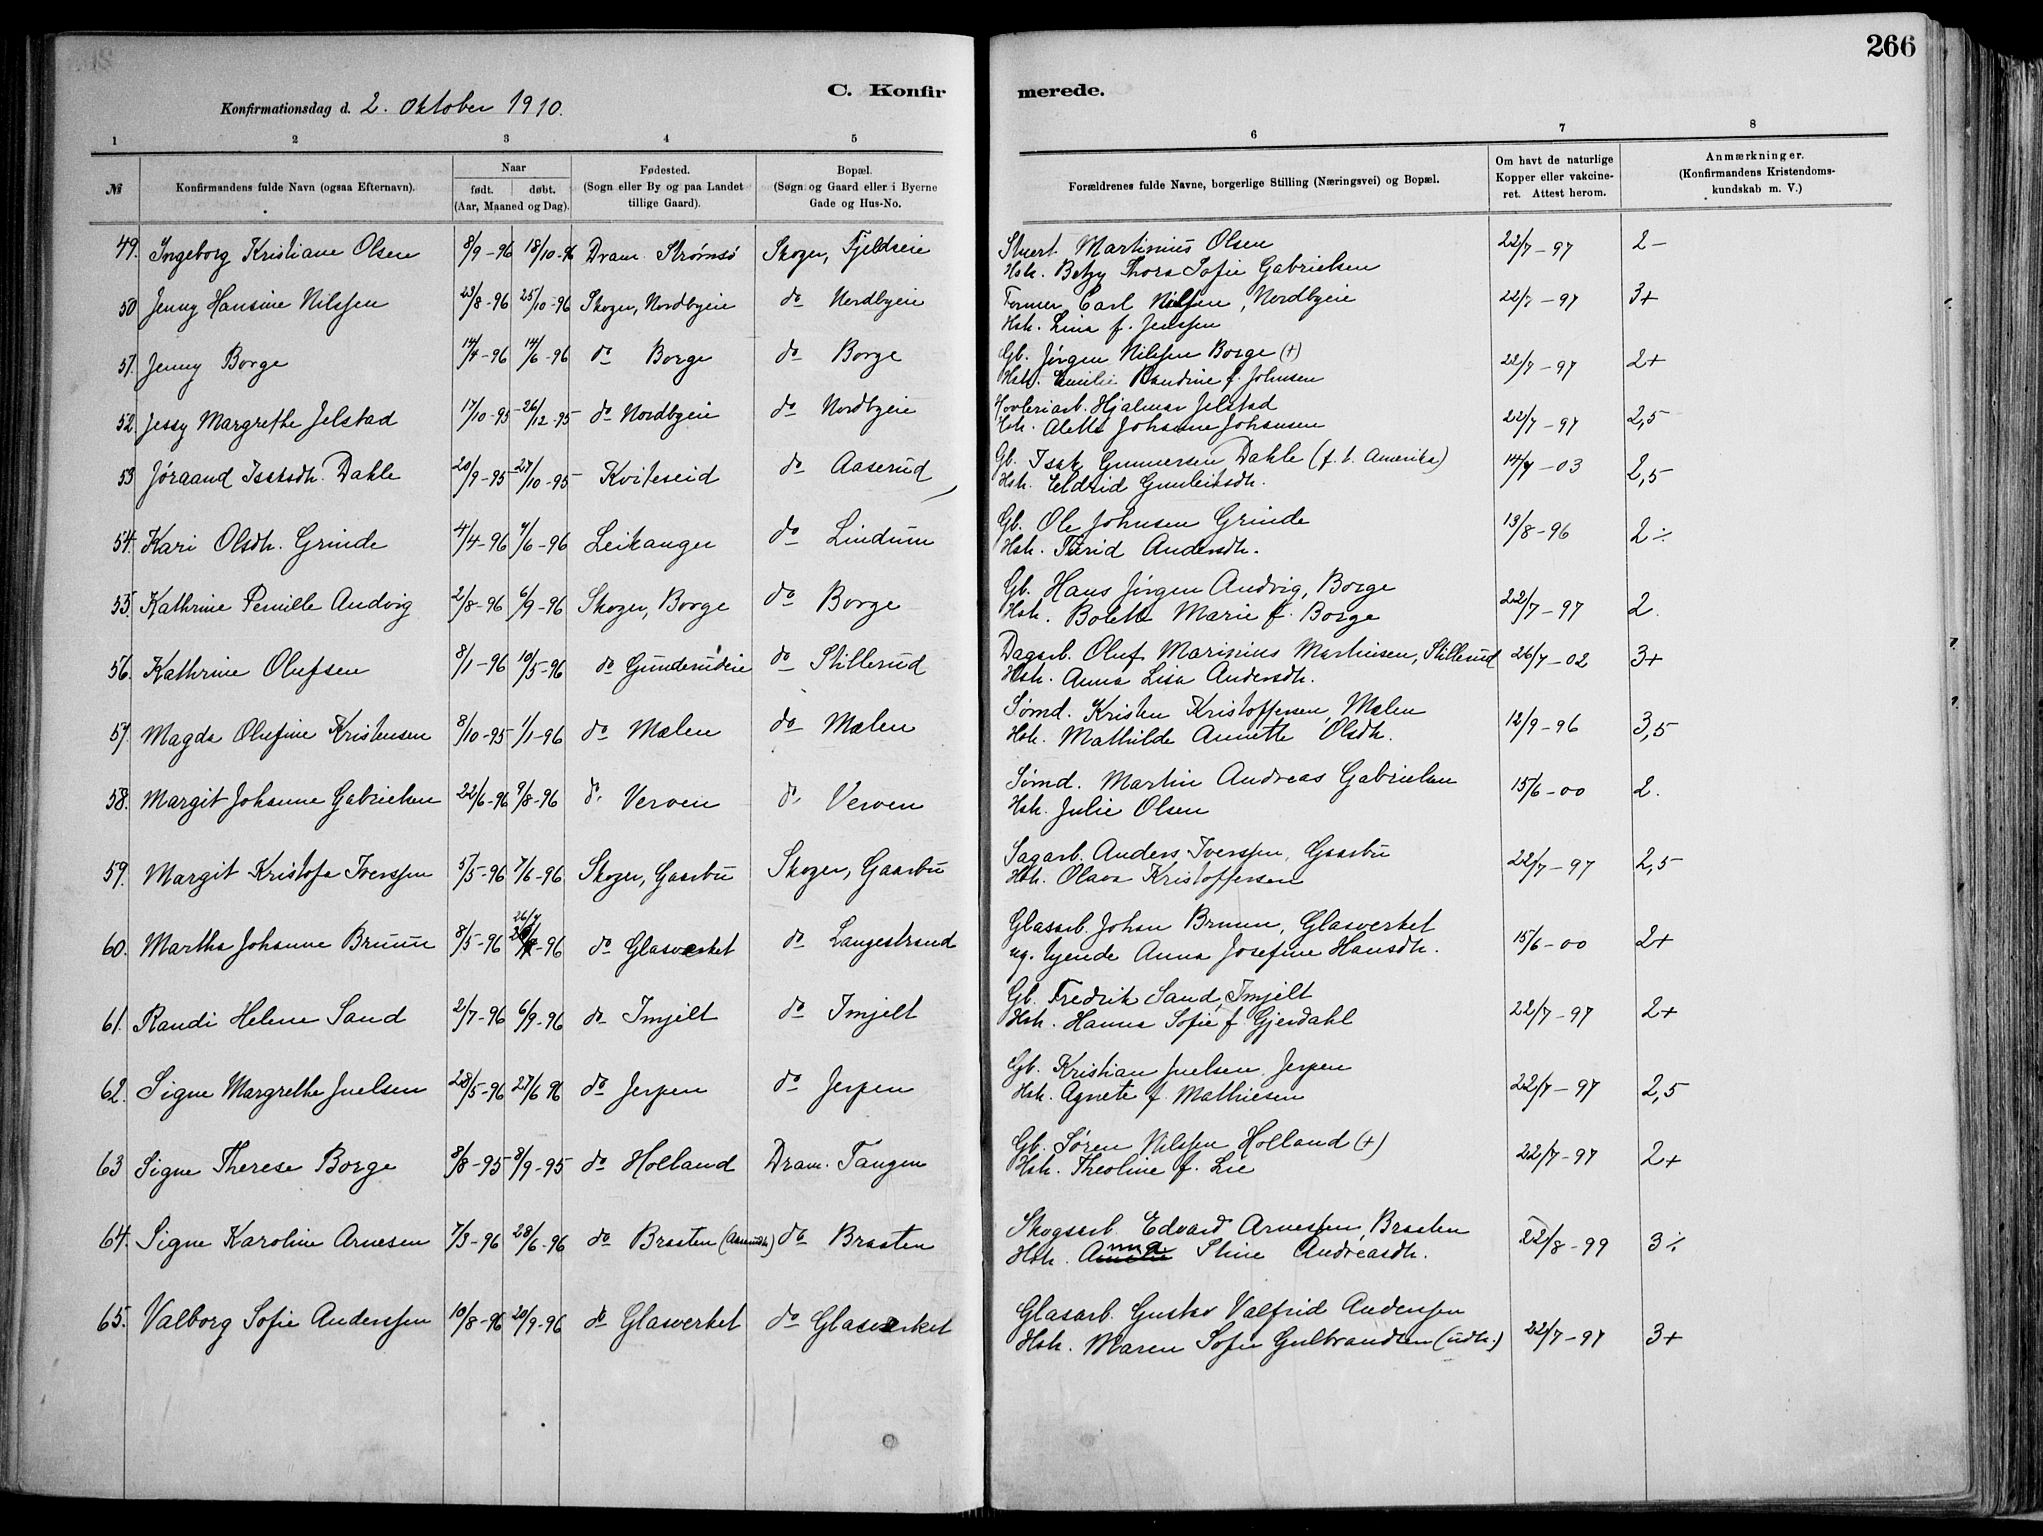 266
C. Konfirmerede.
Konfirmationsdag d. 2. Oktober 1910.
1 2 3 4 5 6 7 8
№
Konfirmandens fulde Navn (ogsaa Efternavn).
Naar
født. døbt.
(Aar, Maaned og Dag).
Fødested.
(Sogn eller By og paa Landet
tillige Gaard).
Bopæl.
(Sogn og Gaard eller i Byerne
Gade og Hus-No.
Forældrenes fulde Navne, borgerlige Stilling (Næringsvei) og Bopæl.
Om havt de naturlige
Kopper eller vakcine-
ret. Attest herom.
Anmærkninger.
(Konfirmandens Kristendoms-
kundskab m. V.)
49. Ingeborg Kristiane Olsen 8/9-96 18/10-96 Dram. Strømsø Skoger, Fjeldseie Martinius Olsen 22/7-97 2-
Hst. Betzy Thora Sofie Gabrielsen
50 Jenny Hansine Nilssen 23/8-96 25/10-96 Skoger, Nordbyeie do Nordbyeie Former Carl Nilssen, Nordbyeie 22/7-97 3+
Hst. Lina f. Jenssen
51. Jenny Borge 14/4-96 14/6-96 do Borge do Borge Gb. Jørgen Nilssen Borge (+) 22/7-97 2+
Hst. Emilie Randine f. Johnsen
52. Jessy Margrethe Jelstad 17/10-95 26/12-95 do Nordbyeie do Nordbyeie Høvleriarb. Hjalmar Jelstad 22/7-97 2,5
Hst. Alette Johanne Johansen
53 Jøraand Isaksdtr. Dahle 20/9-95 27/10-95 Kviteseid do Aaserud Gb. Isak Gunnersen Dahle (f. t. Amerika) 14/7-03 2,5
Hst. Eldrid Gunleiksdtr.
54. Kari Olsdtr. Grinde 4/4-96 7/6-96 Leikanger do Lindum Gb. Ole Johnsen Grinde 13/8-96 2÷
Hst. Turid Andersdtr.
55. Kathrine Pernille Andvig 2/8-96 6/9-96 Skoger, Borge do Borge Gb. Hans Jørgen Andvig, Borge 22/7-97 2.
Hst. Bolette Marie f. Borge
56. Kathrine Olufsen 8/1-96 10/5-96 do Gunderudeie do Stillerud Dagarb. Oluf Marinius Martinsen, Stillerud 26/7-02 3+
Hst. Anna Lisa Andersdtr.
57. Magda Olufine Kristensen 8/10-95 1/1-96 do Mælen do Mælen Sømd. Kristen Kristoffersen, Mælen 12/9-96 3,5
Hst. Mathilde Annette Olsdtr.
58. Margit Johanne Gabrielsen 22/6-96 9/8-96 do. Verven do. Verven Sømd. Martin Andreas Gabrielsen 15/6-00 2.
Hst. Julie Olsen
59. Margit Kristofa Iverssen 5/5-96 7/6-96 Skoger, Gaarbu Skoger, Gaarbu Sagarb. Anders Iverssen, Gaarbu 22/7-97 2,5
Hst. Olava Kristoffersen
60. Martha Johanne Bruun 8/5-96 26/7-96 do Glasverket do Langestrand Glasarb. Johan Bruun, Glasverket 15/6-00 2+
ug. tjende Anna Josefine Hansdtr.
61. Randi Helene Sand 2/7-96 6/9-96 do Imjelt do Imjelt Gb. Fredrik Sand, Imjelt 22/7-97 2+
Hst. Hanna Sofie f. Gjerdahl
62. Signe Margrethe Juelsen 28/5-96 27/6 96 do Jerpen do Jerpen Gb. Kristian Juelsen Jerpen 22/7-97 2,5
Hst. Agnete f. Mathiesen
63 Signe Therese Borge 8/8-95 8/9-95 do Holland Dram. Tangen Gb. Søren Nilssen Holland (+) 22/7-97 2+
Hst. Theoline f. Lie
64. Signe Karoline Arnesen 7/3-96 28/6-96 do Braaten do Braaten Skogsarb. Edvard Arnessen, Braaten 22/8-99 3÷
Hst. Anna Stine Andreasdtr.
65. Valborg Sofie Anderssen 10/8-96 20/9-96 do Glasverket do Glasverket Glasarb. Gustav Valfrid Anderssen 22/7-97 3+
Hst. Maren Sofie Gulbrandsen (udtr.)